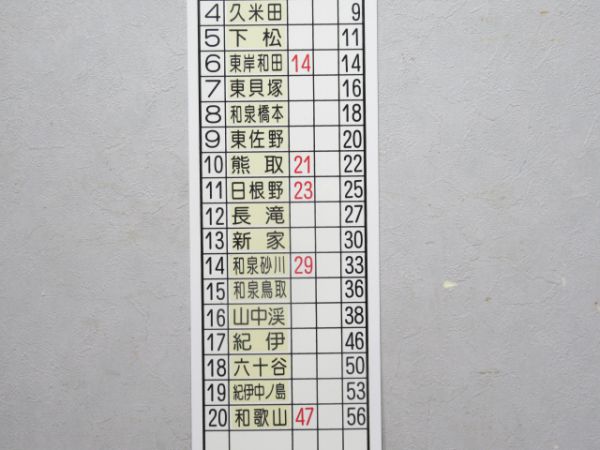 4 久米田 9
5 下松 11
6 東岸和田 14 14
7 東貝塚 16
8 和泉橋本 18
9 東佐野 20
10 熊取 21 22
11 日根野 23 25
12 長滝 27
13 新家 30
14 和泉砂川 29 33
15 和泉鳥取 36
16 山中渓 38
17 紀伊 46
18 六十谷 50
19 紀伊中ノ島 53
20 和歌山 47 56